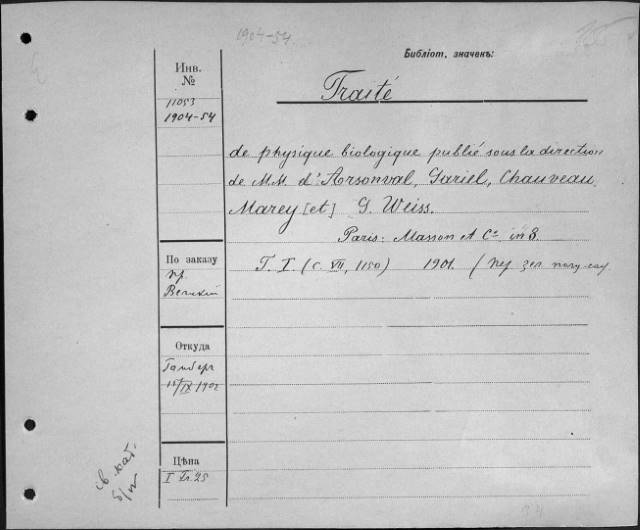 1904-54
Библіот. значекъ:
Инв.
№
Traité
11053
1904-54
de physique biologique publié sous la direction
de M.M. d'Arsonval, Gariel, Chauveau,
Marey [et] G. Weiss.
Paris: Masson et Cie in 8.
По заказу
T. I (c. VII, 1150) 1901. (пер. зел.
пр.
Откуда
15/IX 1902
св кат.
Цѣна
I Fr. 25